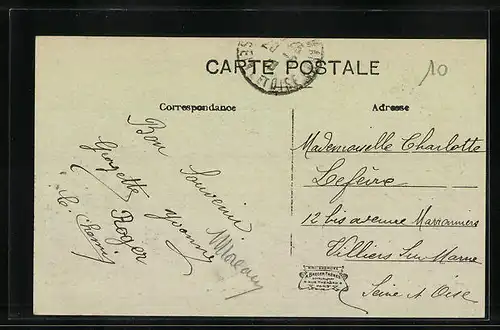 CARTE POSTALE
10
ET OISE
Correspondance
Adresse
Bon Souvenir
Georgette Yvonne
Roger
Mademoiselle Charlotte
Lefèvre
12 bis avenue Marronniers
Villiers Sur Marne
Seine et Oise